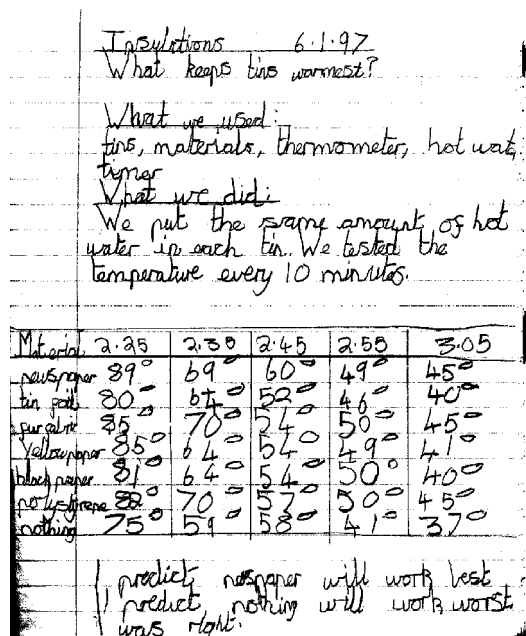 Insylations 6.1.97
What keeps tins warmest?
What we used:
tins, materials, thermometer, hot wat,
timer
What we did:
We put the same amount of hot
water in each tin. We tested the
temperature every 10 minutes.
Material 2.25 2.35 2.45 2.55 3.05
newspaper 89° 69° 60° 49° 45°
tin foil 80° 64° 52° 46° 40°
85° 70° 54° 50° 45°
Yellow paper 85° 64° 54° 49° 41°
black paper 81° 64° 54° 50° 40°
polystyrene 70° 57° 50° 45°
nothing 75° 59° 58° 41° 37°
I predict nespaper will work best
I predict nothing will work worst
was right.